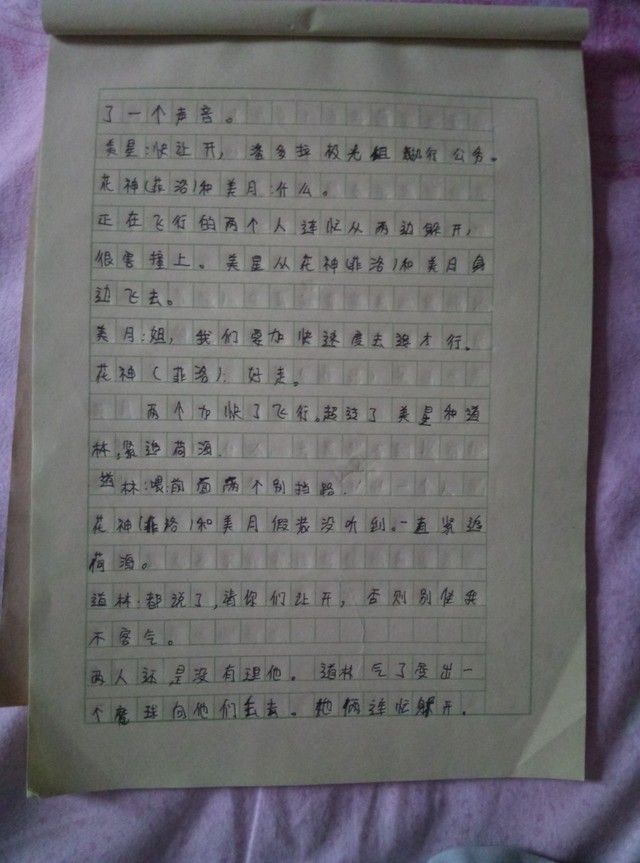 了一个声音。
美星:快让开，洛多拉极光组执行公务。
花神(菲洛)和美月:什么。
正在飞行的两个人连忙从两边躲开，
很害撞上。美星从花神(菲洛)和美月身
边飞去。
美月:姐，我们要加快速度去追才行。
花神(菲洛):好走。
两个加快了飞行。超过了美星和道
林,紧追荷海.
道林:喂前面两个别挡路.
花神(菲洛)和美月假装没听到。一直紧追
荷海。
道林:都说了,请你们让开，否则别怪我
不客气。
两人还是没有理他。道林气了变出一
个魔球向他们丢去。她俩连忙躲开。